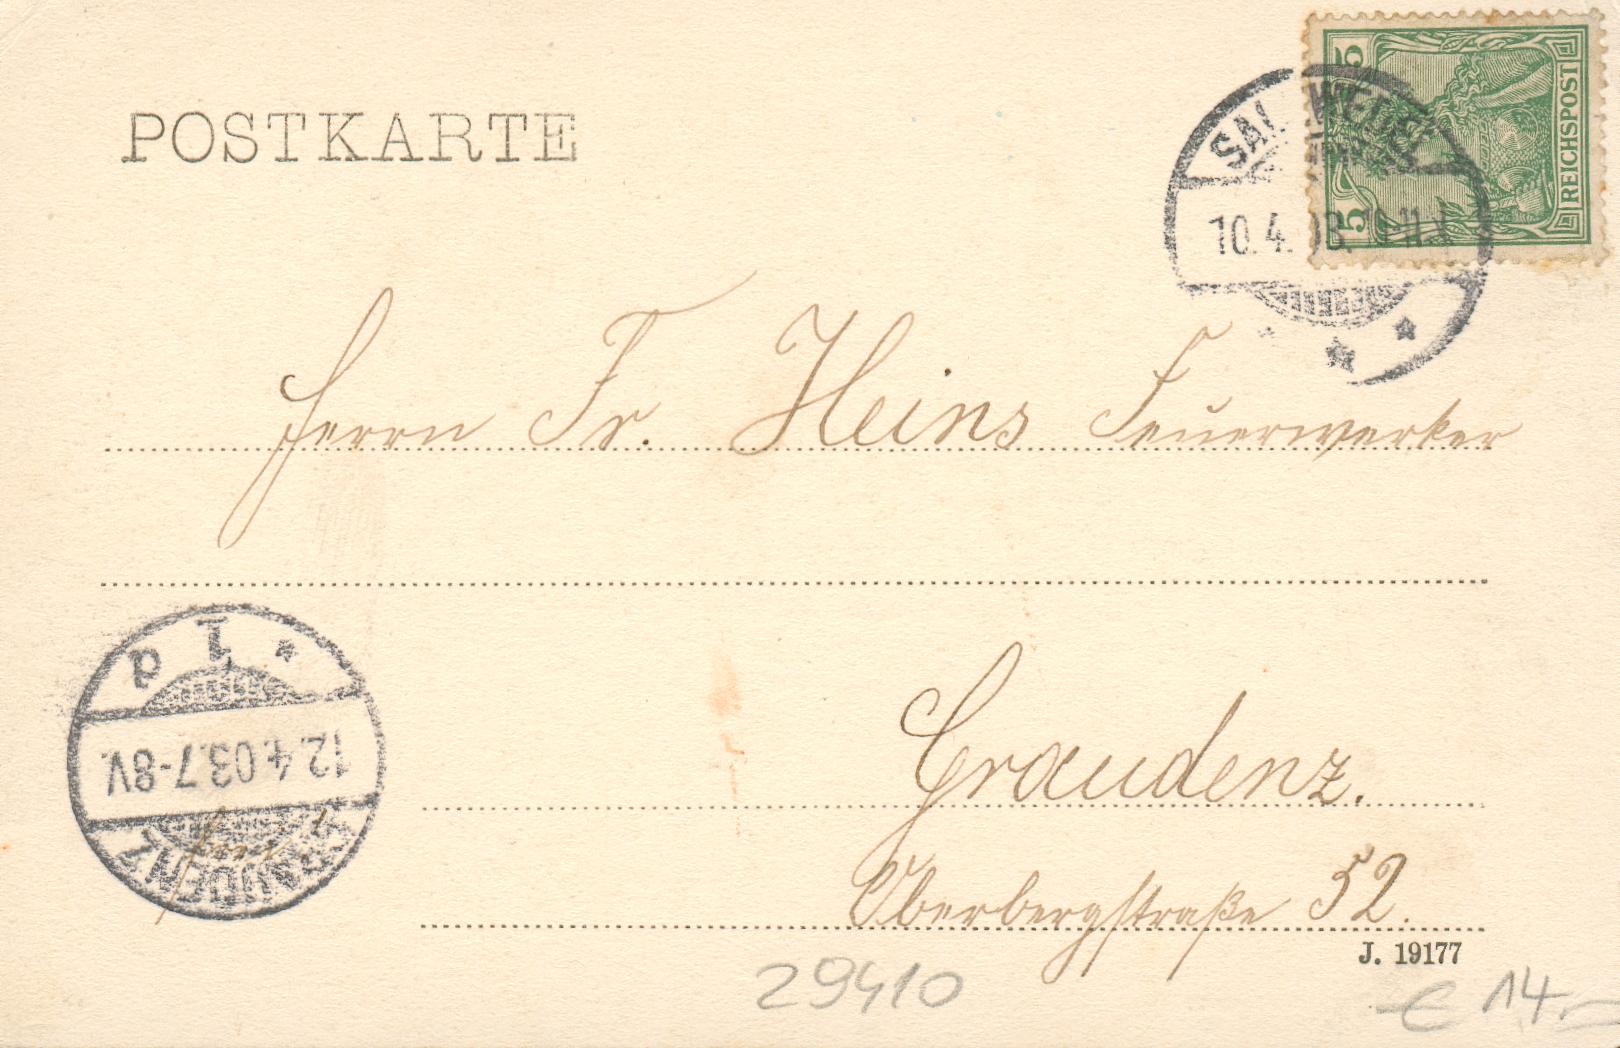 POSTKARTE
5 5
REICHSPOST
SALZWEDEL
10.4.03. 10-11.V
Herrn Fr. Heins Feuerwerker
1 d
12.4.03.7-8V.
GRAUDENZ
Graudenz.
Oberbergstraße 52.
J. 19177
29410
€ 14,-